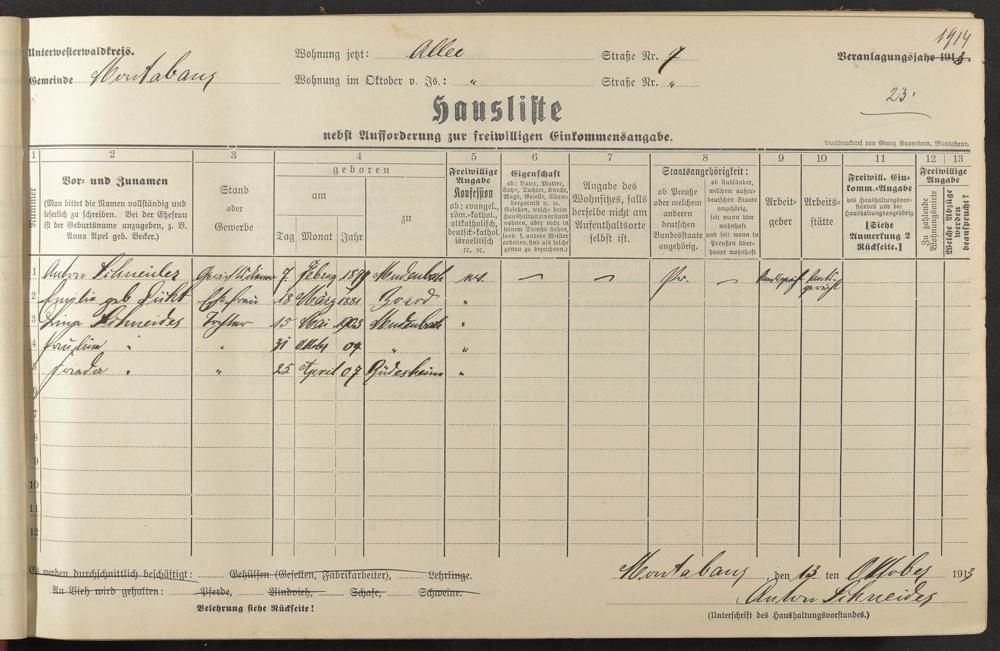 1914
Unterwesterwaldkreis. Wohnung jetzt: Allee Straße Nr. 7 Veranlagungsjahr 1913.
Gemeinde Montabaur Wohnung im Oktober v. Js.: " Straße Nr. "
23.
Hausliste
nebst Aufforderung zur freiwilligen Einkommensangabe.
Buchdruckerei von Georg Sauerborn, Montabaur.
1 2 3 4 5 6 7 8 9 10 11 12 13
Nummer
Vor- und Zunamen
(Man bittet die Namen vollständig und
leserlich zu schreiben. Bei der Ehefrau
ist der Geburtsname anzugeben, z. B.
Anna Apel geb. Becker.)
Stand
oder
Gewerbe
geboren
am
Tag Monat Jahr
zu
Freiwillige
Angabe
Konfession
ob: evangel.,
röm.-kathol.,
altkatholisch,
deutsch-kathol.
israelitisch
ec. ec.
Eigenschaft
ob: Vater, Mutter,
Sohn, Tochter, Knecht,
Magd, Geselle, Cham-
bregarnist ec.
Gesellen, welche beim
Haushaltungsvorstand
wohnen, aber nicht in
seinem Dienste stehen,
sond. f. andere Meister
arbeiten, sind als solche
genau zu bezeichnen.
Angabe des
Wohnsitzes, falls
derselbe nicht am
Aufenthaltsorte
selbst ist.
Staatsangehörigkeit:
ob Preuße
oder welchem
anderen
deutschen
Bundesstaate
angehörig.
ob Ausländer,
welchem außer-
deutschen Staate
angehörig,
seit wann hier
wohnhaft
und seit wann in
Preußen über-
haupt wohnhaft
Arbeit-
geber
Arbeits-
stätte
Freiwill. Ein-
komm.-Angabe
des Haushaltungsvor-
standes und der
Haushaltungsangehörig.
[Siehe
Anmerkung 2
Rückseite.]
Freiwillige
Angabe
Zu zahlende
Wohnungsmiete
Welche Abzüge
werden
beansprucht?
1 Anton Schneider 7 1879 Mudenbach – – Pr. – Amtsgericht Amtsgericht
2 Emilie geb. Ehefrau 18 März 1881 "
3 Schneider Tochter 15 Mai 1903 Mudenbach "
4 Pauline " " 31 Oktbr 04 " "
5 Frieda " " 25 April 07 Rüdesheim "
6
7
8
9
10
11
12
Es werden durchschnittlich beschäftigt: Gehülfen (Gesellen, Fabrikarbeiter), Lehrlinge.
An Vieh wird gehalten: Pferde, Rindvieh, Schafe, Schweine.
Belehrung siehe Rückseite!
Montabaur, den 13 ten Oktober 1913
Anton Schneider
(Unterschrift des Haushaltungsvorstandes.)